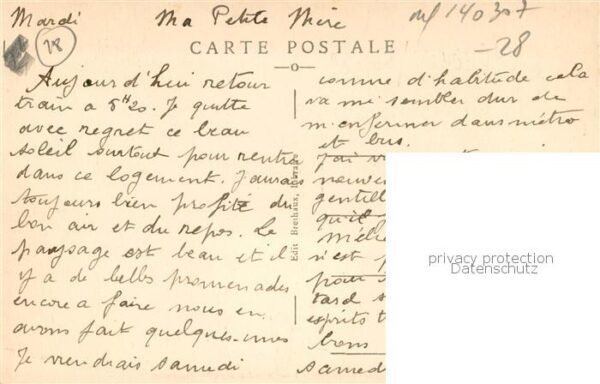 Mardi Ma Petite Mère
nf 140307
28
-28
CARTE POSTALE
Aujourd'hui retour
train a 5H20. Je quitte
avec regret ce beau
soleil surtout pour rentrer
dans ce logement. J'aurais
toujours bien profité du
bon air et du repos. Le
paysage est beau et il
y a de belles promenades
encore a faire nous en
avons fait quelques-unes
Je viendrais samedi
Edit Brethaux,
comme d'habitude cela
va me sembler dur de
m'enfermer dans métro
et bus.
J'ai
gentill
qu'il
n'est p
pour
tard s
esprits t
bons
samed
privacy protection
Datenschutz